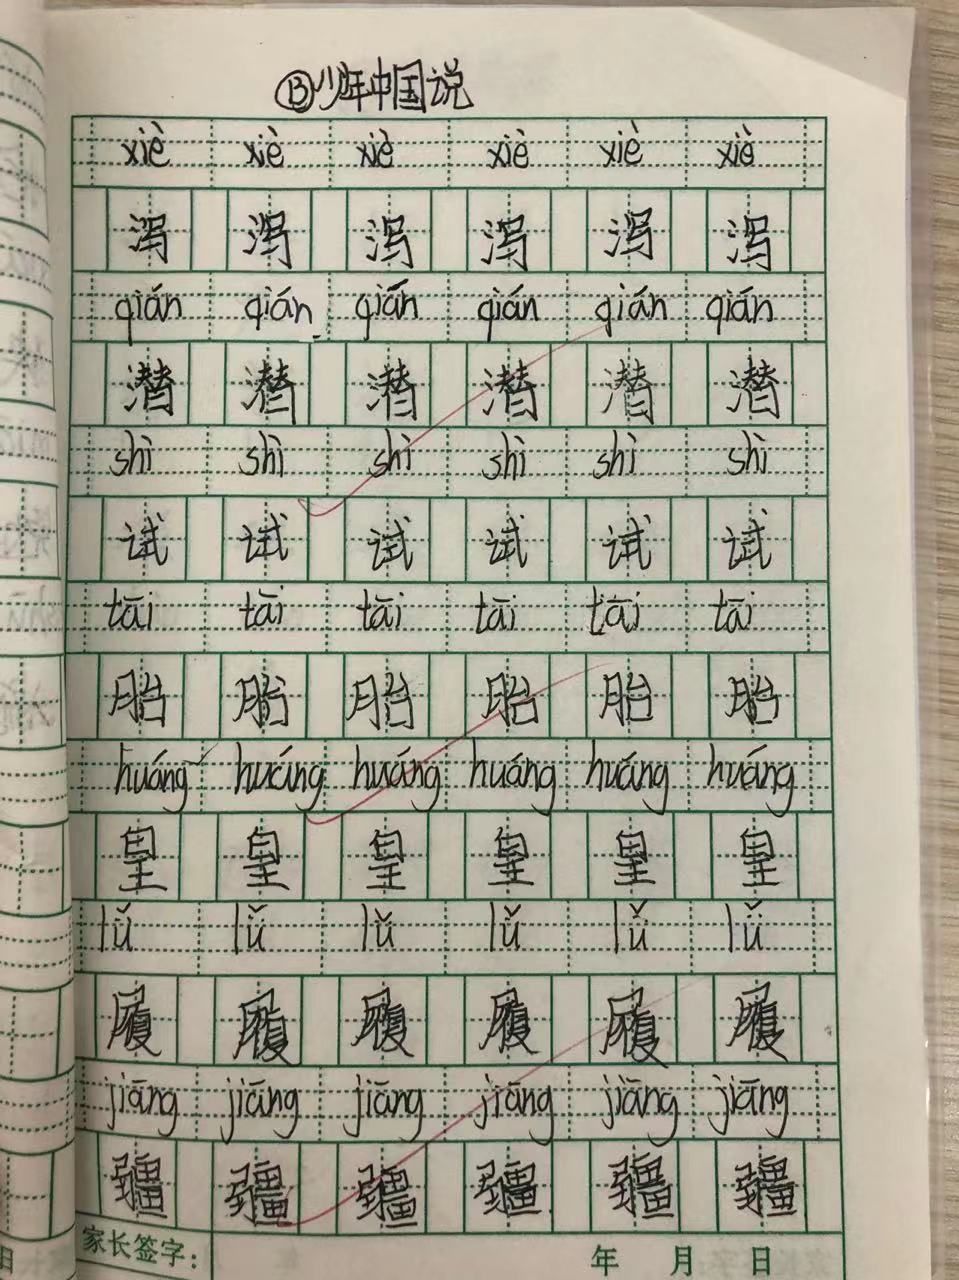 ⑬少年中国说
xiè xiè xiè xiè xiè xiè
泻 泻 泻 泻 泻 泻
qián qián qián qián qián qián
潜 潜 潜 潜 潜 潜
shì shì shì shì shì shì
试 试 试 试 试 试
tāi tāi tāi tāi tāi tāi
胎 胎 胎 胎 胎 胎
huáng huáng huáng huáng huáng huáng
皇 皇 皇 皇 皇 皇
lǚ lǚ lǚ lǚ lǚ lǚ
履 履 履 履 履 履
jiāng jiāng jiāng jiāng jiāng jiāng
疆 疆 疆 疆 疆 疆
家长签字: 年 月 日
日